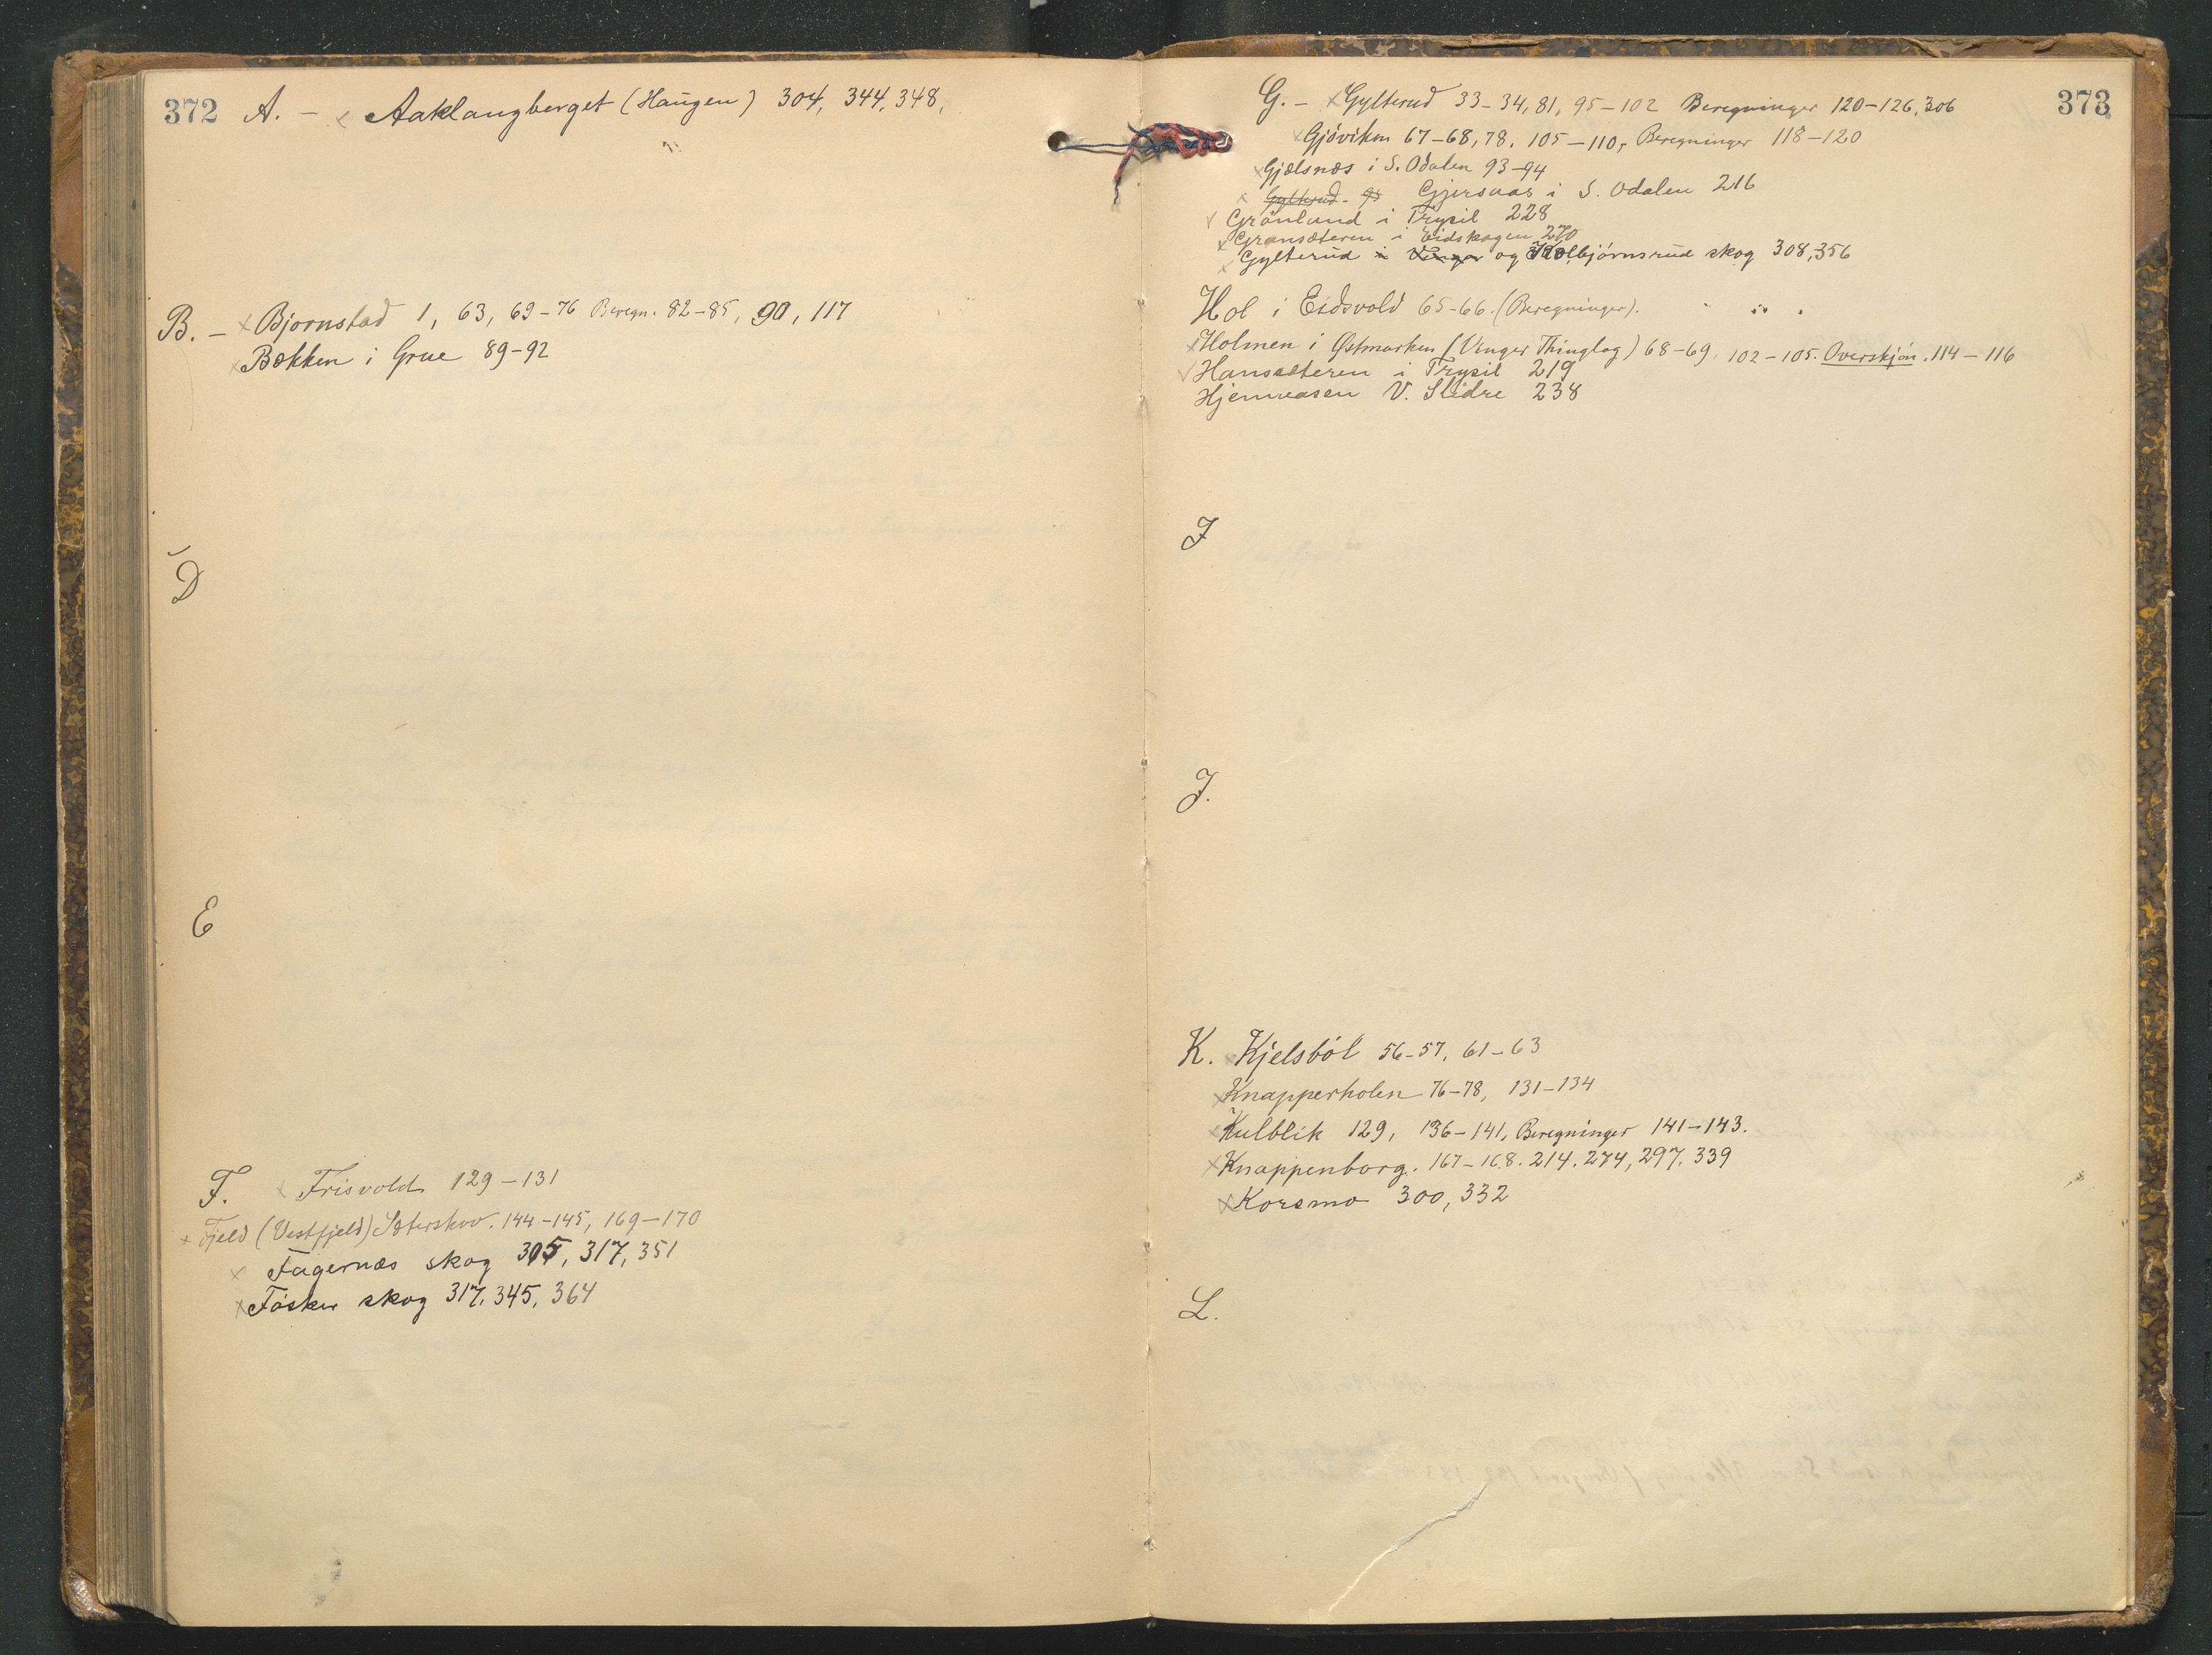 372 A. - x Aaklangberget (Haugen) 304, 344, 348,
B. - x Bjornstad 1, 63, 69-76 Beregn. 82-85, 90, 117
x Bækken i Grue 89-92
D
E
F. x Frisvold 129-131
x Fjeld (Vestfjeld) Sæterskov. 144-145, 169-170
x Fagernæs skog 305, 317, 351
x Fosker skog 317, 345, 364
373
G. - x Gylterud 33-34, 81, 95-102 Beregninger 120-126, 306
x Gjöviken 67-68, 78, 105-110, Beregninger 118-120
x Gjælsnæs i S. Odalen 93-94
x Gylterud - 95 Gjersaas i S. Odalen 216
x Grönland i Trysil 228
x Gransæteren i Eidskogen 270
x Gylterud i Vinger og Kolbjørnsrud skog 308, 356
Hol i Eidsvold 65-66. (Beregninger).
x Holmen i Østmarken (Vinger Thinglag) 68-69, 102-105. Overskjön. 114-116
Hansæteren i Trysil 219
Hjemveasen V. Slidre 238
I
J.
K. x Kjelsböl 56-57, 61-63
x Knapperholen 76-78, 131-134
x Kulblik 129, 136-141, Beregninger 141-143.
x Knappenborg. 167-168. 214. 274, 297. 339
x Korsmo 300, 332
L.